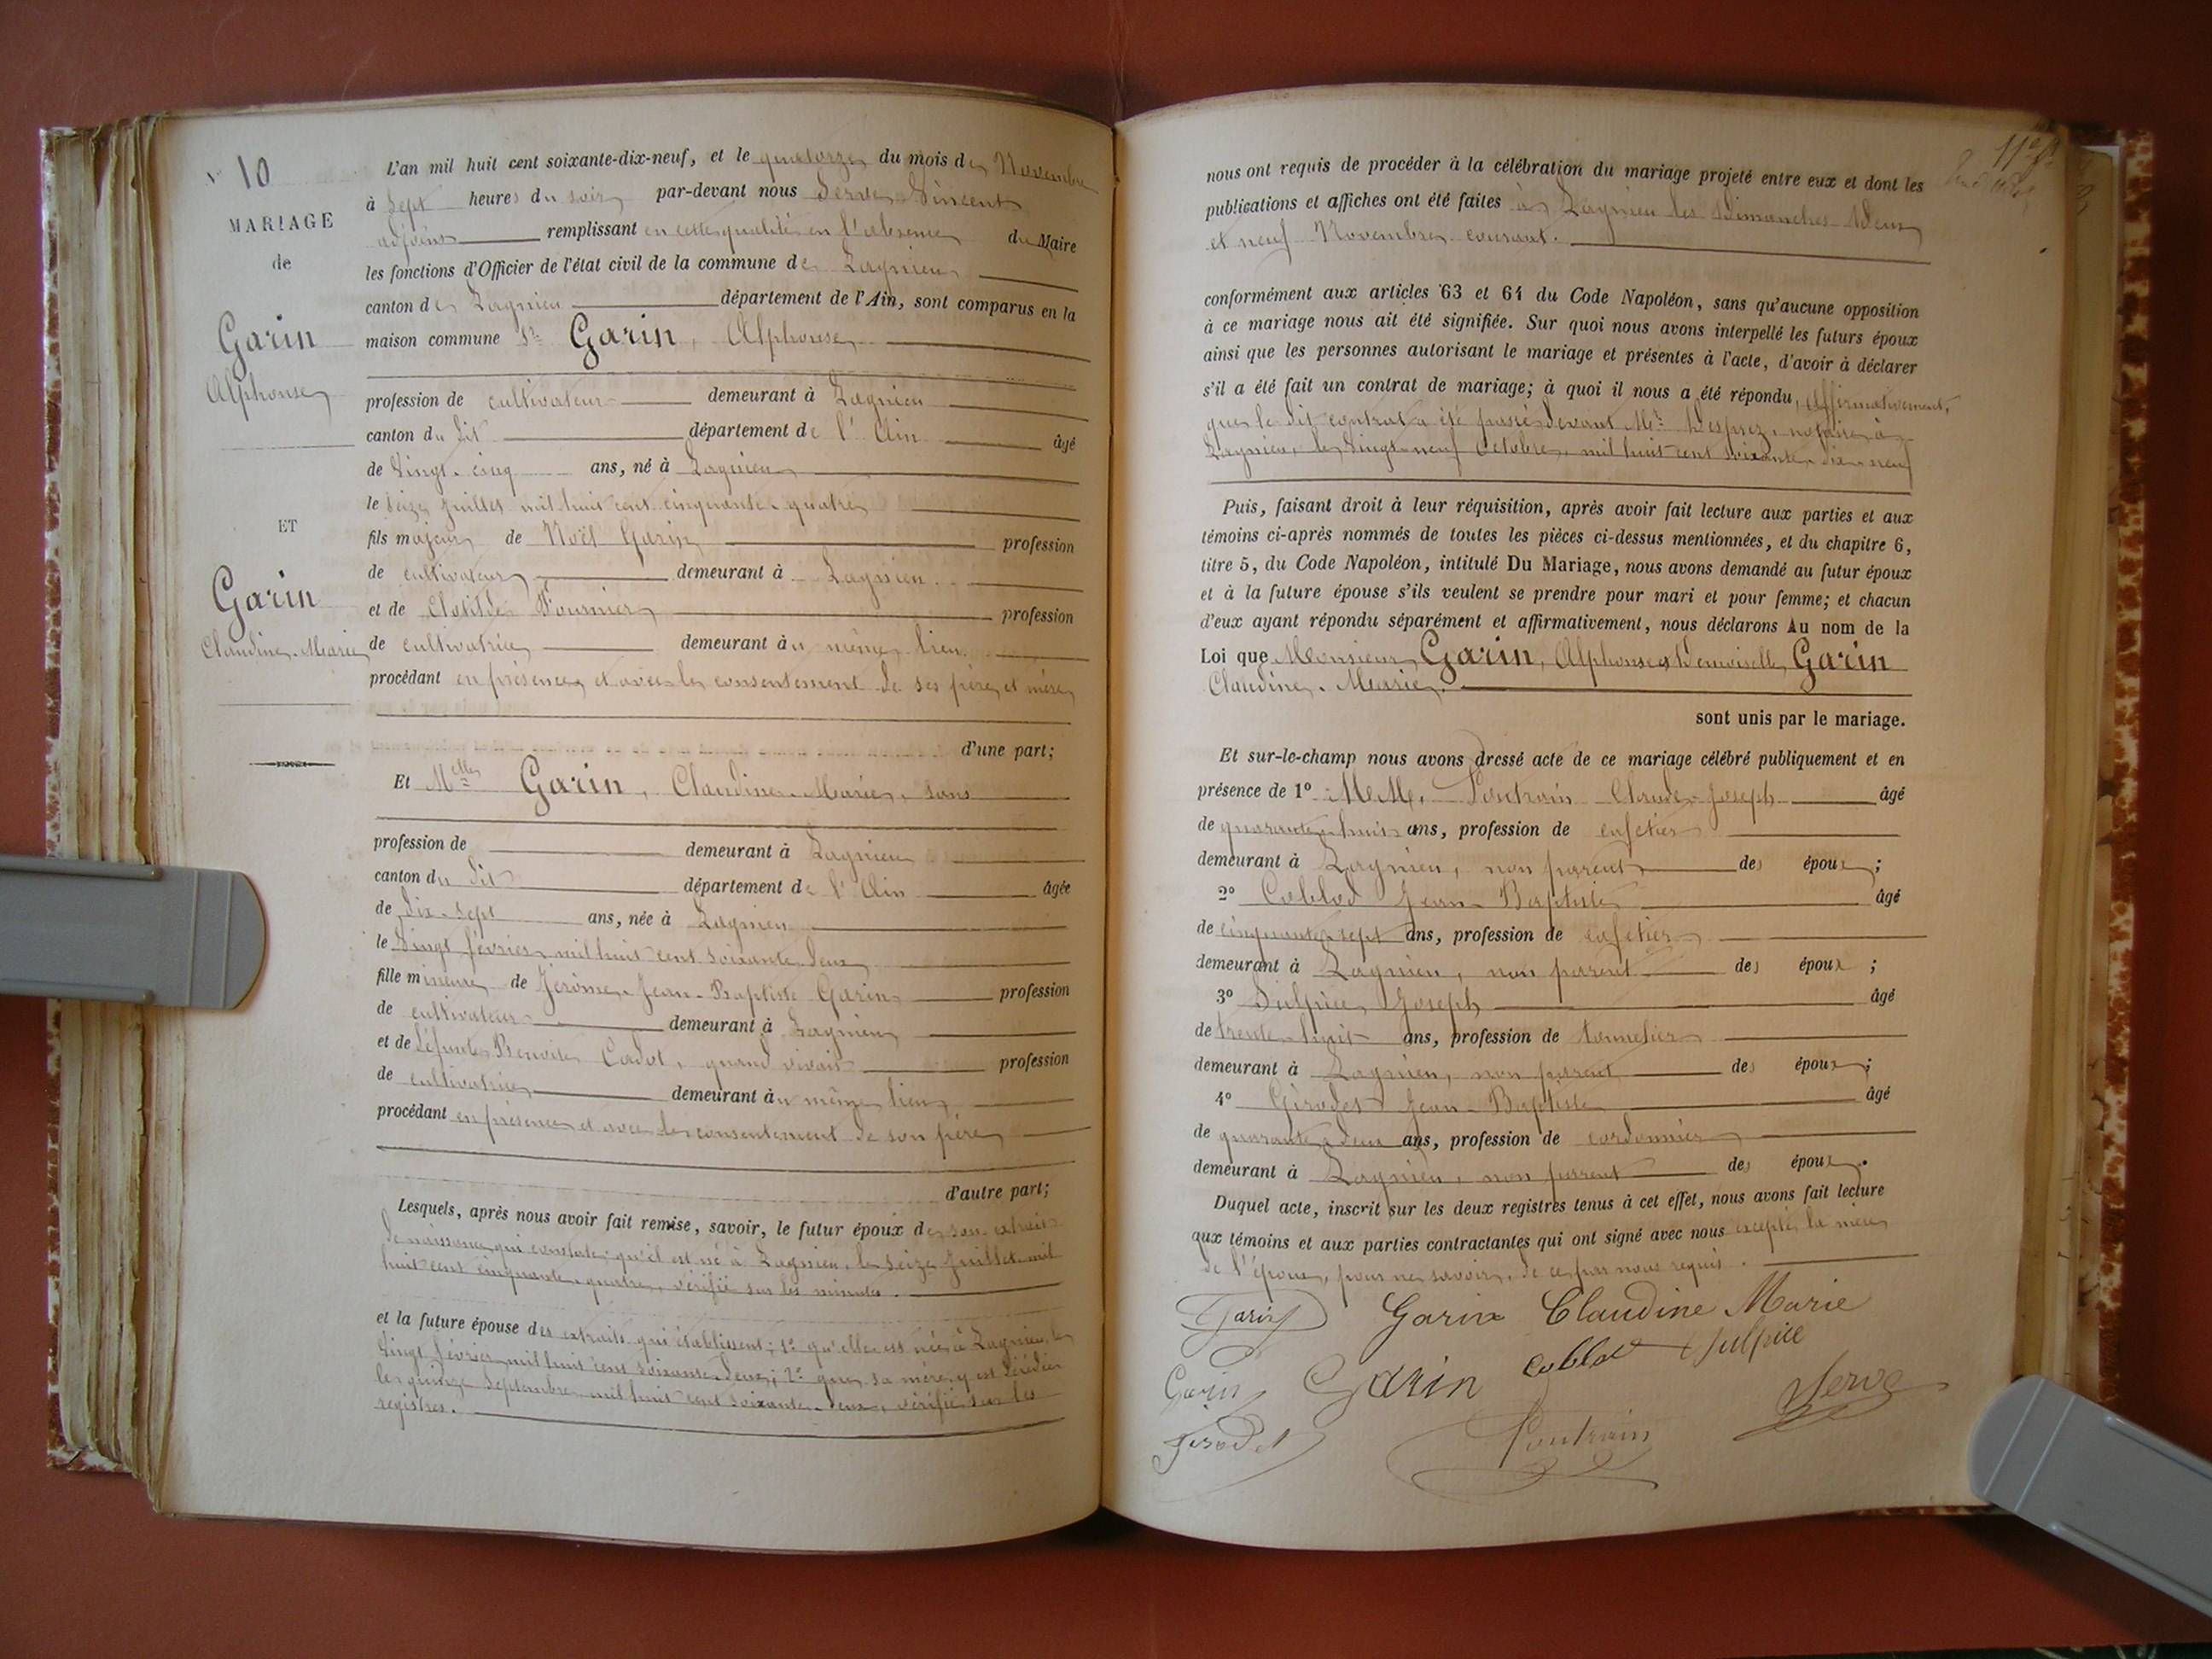 N° 10
MARIAGE
de
Garin
Alphonse
ET
Garin
Claudine-Marie
L'an mil huit cent soixante-dix-neuf, et le quatorze du mois de Novembre
à Sept heures du soir par-devant nous Serve Vincent
adjoint remplissant en cette qualité en l'absence du Maire
les fonctions d'Officier de l'état civil de la commune de Lagnieu
canton de Lagnieu département de l'Ain, sont comparus en la
maison commune Sr Garin, Alphonse
profession de cultivateur demeurant à Lagnieu
canton du dit département de l'Ain âgé
de Vingt-cinq ans, né à Lagnieu
le Seize Juillet mil huit cent cinquante-quatre
fils majeur de Noël Garin profession
de cultivateur demeurant à Lagnieu
et de Clotilde Fournier profession
de cultivatrice demeurant au même lieu
procédant en présence et avec le consentement de ses père et mère
d'une part;
Et Melle Garin, Claudine-Marie, sans
profession de demeurant à Lagnieu
canton du dit département de l'Ain âgée
de dix-sept ans, née à Lagnieu
le Vingt février mil huit cent soixante deux
fille mineure de Jérôme-Jean-Baptiste Garin profession
de cultivateur demeurant à Lagnieu
et de défunte Benoite Cadot, quand vivait profession
de cultivatrice demeurant au même lieu
procédant en présence et avec le consentement de son père
d'autre part;
Lesquels, après nous avoir fait remise, savoir, le futur époux de son extrait
de naissance qui constate qu'il est né à Lagnieu, le Seize Juillet mil
huit cent cinquante-quatre, vérifié sur les minutes.
et la future épouse des extraits qui établissent; 1° qu'elle est née à Lagnieu, le
Vingt février mil huit cent soixante deux; 2° que sa mère y est décédée
le quinze Septembre mil huit cent soixante-deux, vérifié sur les
registres.
11e
nous ont requis de procéder à la célébration du mariage projeté entre eux et dont les
publications et affiches ont été faites à Lagnieu les Dimanches Deux
et neuf Novembre courant.
conformément aux articles 63 et 64 du Code Napoléon, sans qu'aucune opposition
à ce mariage nous ait été signifiée. Sur quoi nous avons interpellé les futurs époux
ainsi que les personnes autorisant le mariage et présentes à l'acte, d'avoir à déclarer
s'il a été fait un contrat de mariage; à quoi il nous a été répondu, affirmativement,
que le dit contrat a été passé devant Me Desprez, notaire à
Lagnieu, le Vingt-neuf Octobre, mil huit cent soixante-dix-neuf
Puis, faisant droit à leur réquisition, après avoir fait lecture aux parties et aux
témoins ci-après nommés de toutes les pièces ci-dessus mentionnées, et du chapitre 6,
titre 5, du Code Napoléon, intitulé Du Mariage, nous avons demandé au futur époux
et à la future épouse s'ils veulent se prendre pour mari et pour femme; et chacun
d'eux ayant répondu séparément et affirmativement, nous déclarons Au nom de la
Loi que Monsieur Garin, Alphonse et Demoiselle Garin
Claudine-Marie.
sont unis par le mariage.
Et sur-le-champ nous avons dressé acte de ce mariage célébré publiquement et en
présence de 1° M.M. Poutrain Claude-Joseph âgé
de quarante-huit ans, profession de cafetier
demeurant à Lagnieu, non parent des époux;
2° Coblod Jean-Baptiste âgé
de cinquante-sept ans, profession de cafetier
demeurant à Lagnieu, non parent des époux;
3° Sulpice Joseph âgé
de trente-huit ans, profession de tonnelier
demeurant à Lagnieu, non parent des époux;
4° Girodet Jean-Baptiste âgé
de quarante-deux ans, profession de cordonnier
demeurant à Lagnieu, non parent des époux.
Duquel acte, inscrit sur les deux registres tenus à cet effet, nous avons fait lecture
aux témoins et aux parties contractantes qui ont signé avec nous excepté la mère
de l'époux, pour ne savoir, de ce par nous requis.
Garin Garin Claudine Marie
Garin Garin Coblod Sulpice
Girodet Poutrain Serve